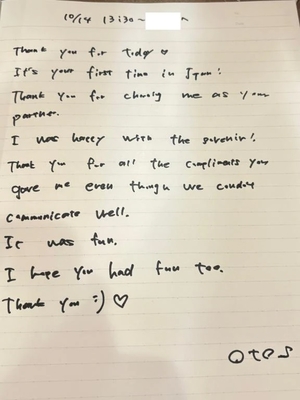 10/14 13:30~
Thank you for today ♡
It's your first time in Japan!
Thank you for chosing me as your
partner.
I was happy with the souvenir!
Thank you for all the compliments you
gave me even though we couldn't
communicate well.
It was fun.
I hope you had fun too.
Thank you :) ♡